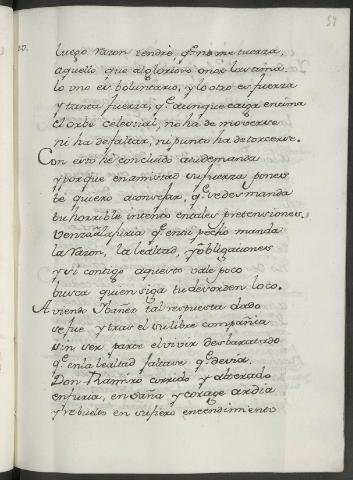 59
luego razon tendrè, qe. no me tuerza,
aquello que al glorioso onor lastima
lo uno es voluntario, y lo otro es fuerza
y tanta fuerza, qe. aunque caiga encima
el orbe celestial, no ha de moverse
ni ha de faltar, ni punto ha de torcerse.
Con esto hè concluido tu demanda
y porque en amistad su fuerza pones
te quiero aconsejar, qe. se desmanda
tu horrible intento en tales pretensiones.
venza à la furia qe. en tu pecho manda
la razon, la lealtad, y obligaciones
y si contigo aquesto vale poco
busca quien siga tu desorden loco.
Aviendo Ibañez tal respuesta dado
se fue y tras el su libre compañia
sin ser parte el vivir desbaratado
qe. en la lealtad faltase qe. devia.
Don Ramiro corrido y alterado
en furia, en saña, y corage ardia
y rebuelto en su fiero encendimiento